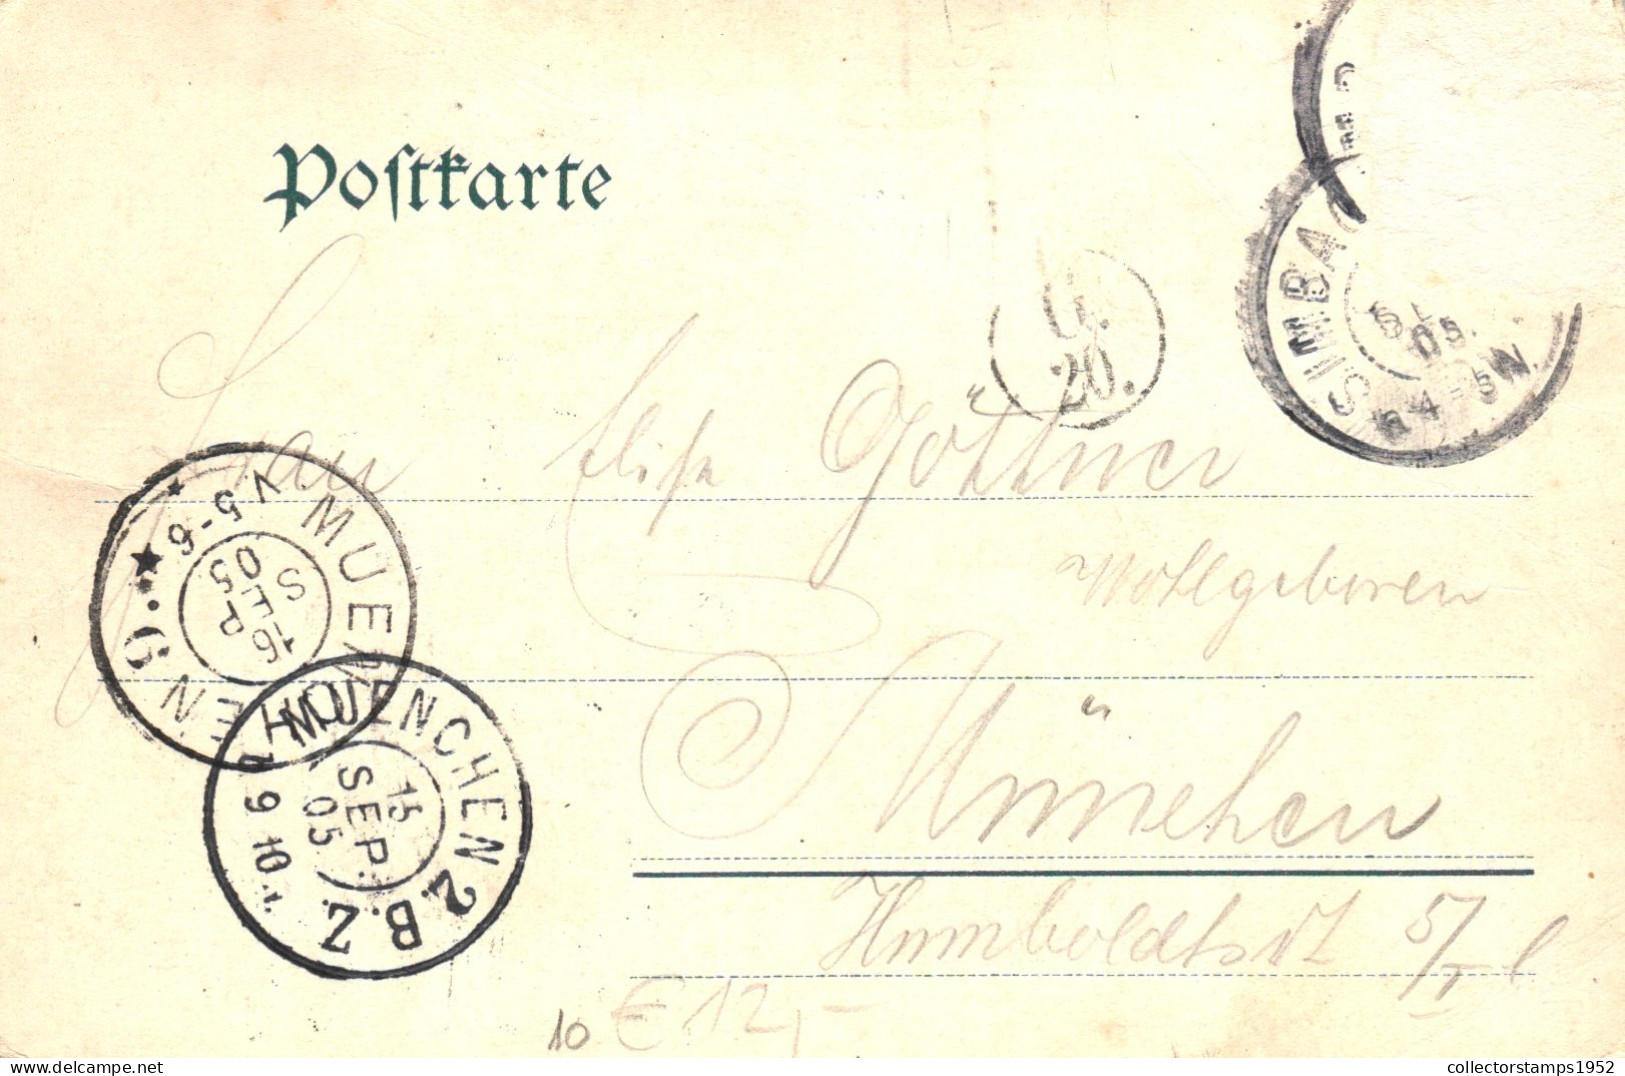 Postkarte
SIMBAC
05.
4-5 N.
G.
20.
Frau Elise Göttner
Wohlgeboren
München
Humboldtstr 5/I l
MUENCHEN 9.
V 5-6
16
SEP
05
MUENCHEN 2. B.Z.
15
SEP.
05
9 10
10 € 12,-
delcampe.net
collectorstamps1952